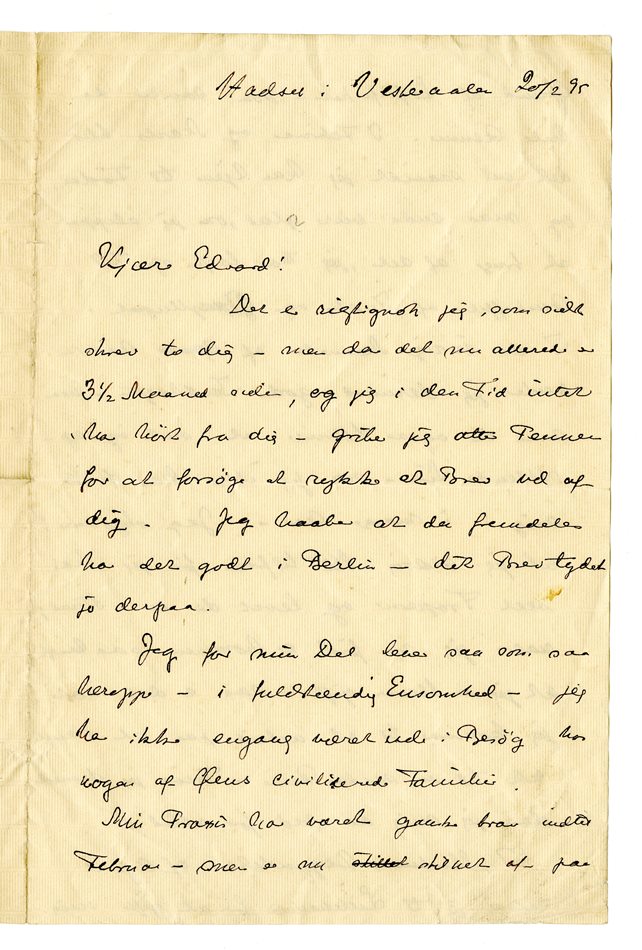 Hadsel i Vesteraalen 20/2 95
Kjære Edvard!
Det er rigtignok jeg, som sidst
skrev to dig – men da det nu allerede er
3½ Maaned siden, og jeg i den Tid intet
har hørt fra dig – griber jeg atter Pennen
for at forsøge at rykke et Brev ud af
dig. Jeg haaber at du fremdeles
har det godt i Berlin – dit Brev tydet
jo derpaa.
Jeg for min Del lever saa som saa
heroppe – i fuldstændig Ensomhed – jeg
har ikke engang været inde i Besøg hos
nogen af Øens civiliserede Familier.
Min Praxis har været ganske bra indtil
Februar – men er nu stillet stilnet af paa